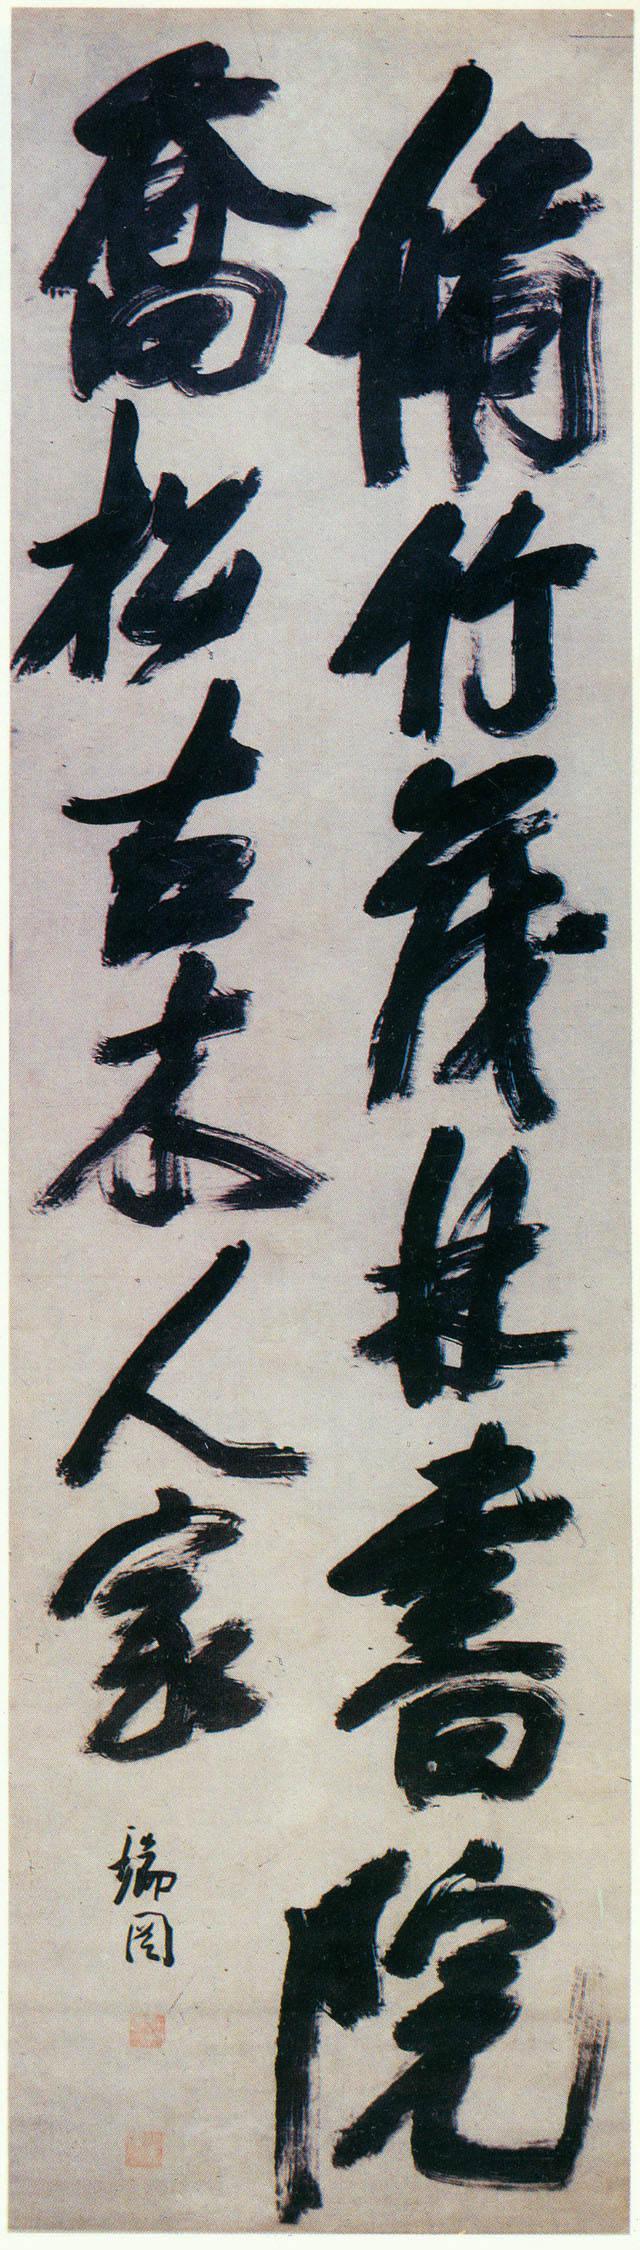 脩竹茂林書院
喬松古木人家
瑞圖